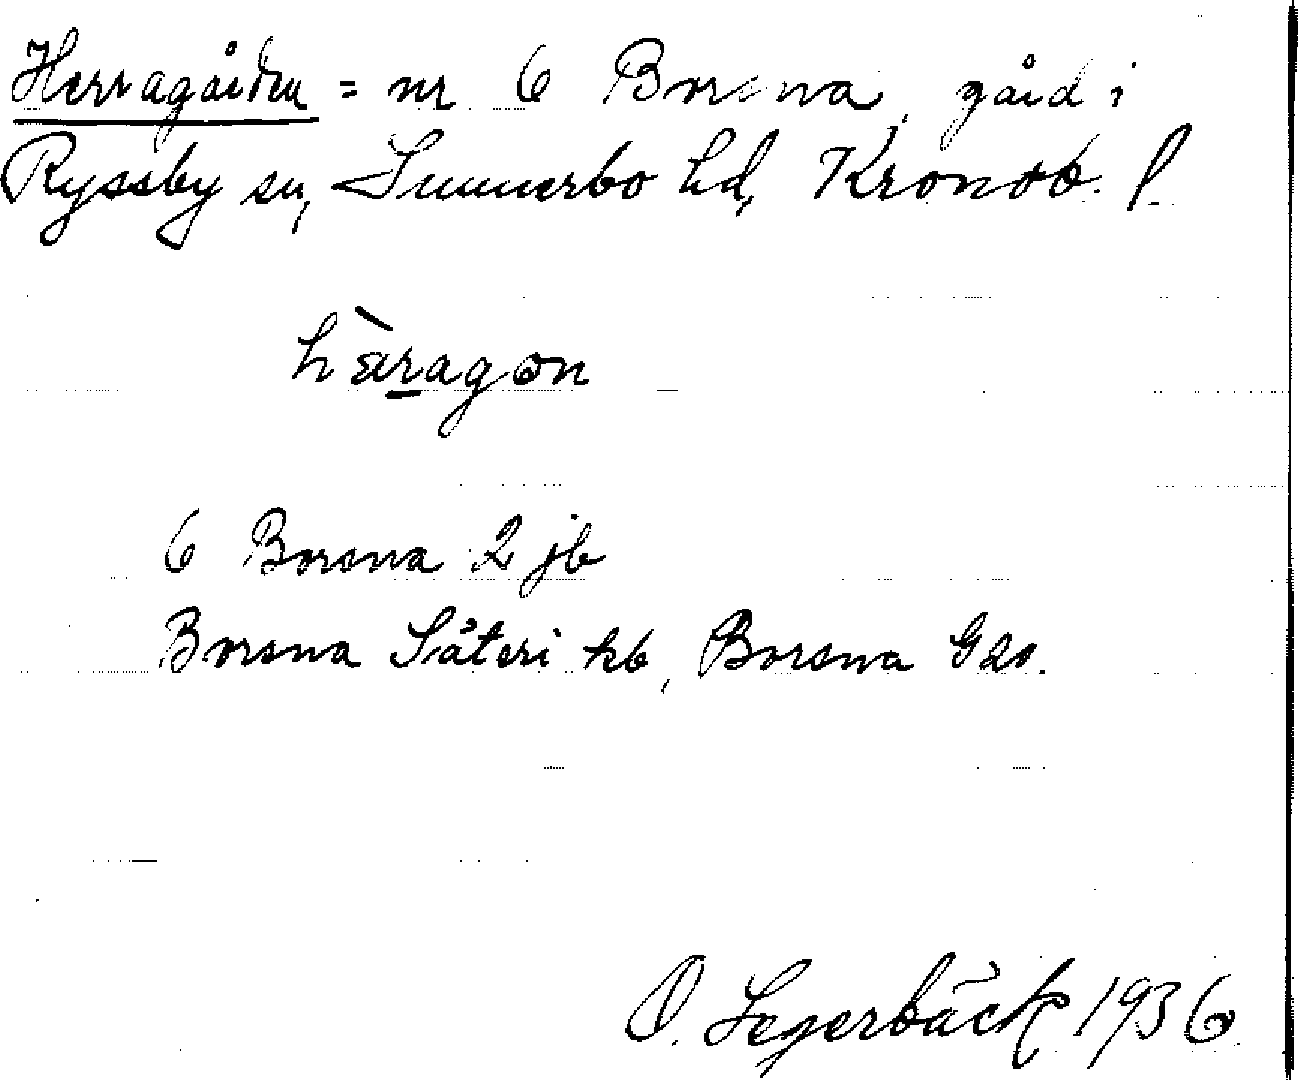 Herragården = nr 6 Borsna, gård i
Ryssby sn, Sunnerbo hd, Kronob. l.
hæ̀ragon
6 Borsna 2 jb
Borsna Säteri kb, Borsna Gds.
O. Segerbäck 1936